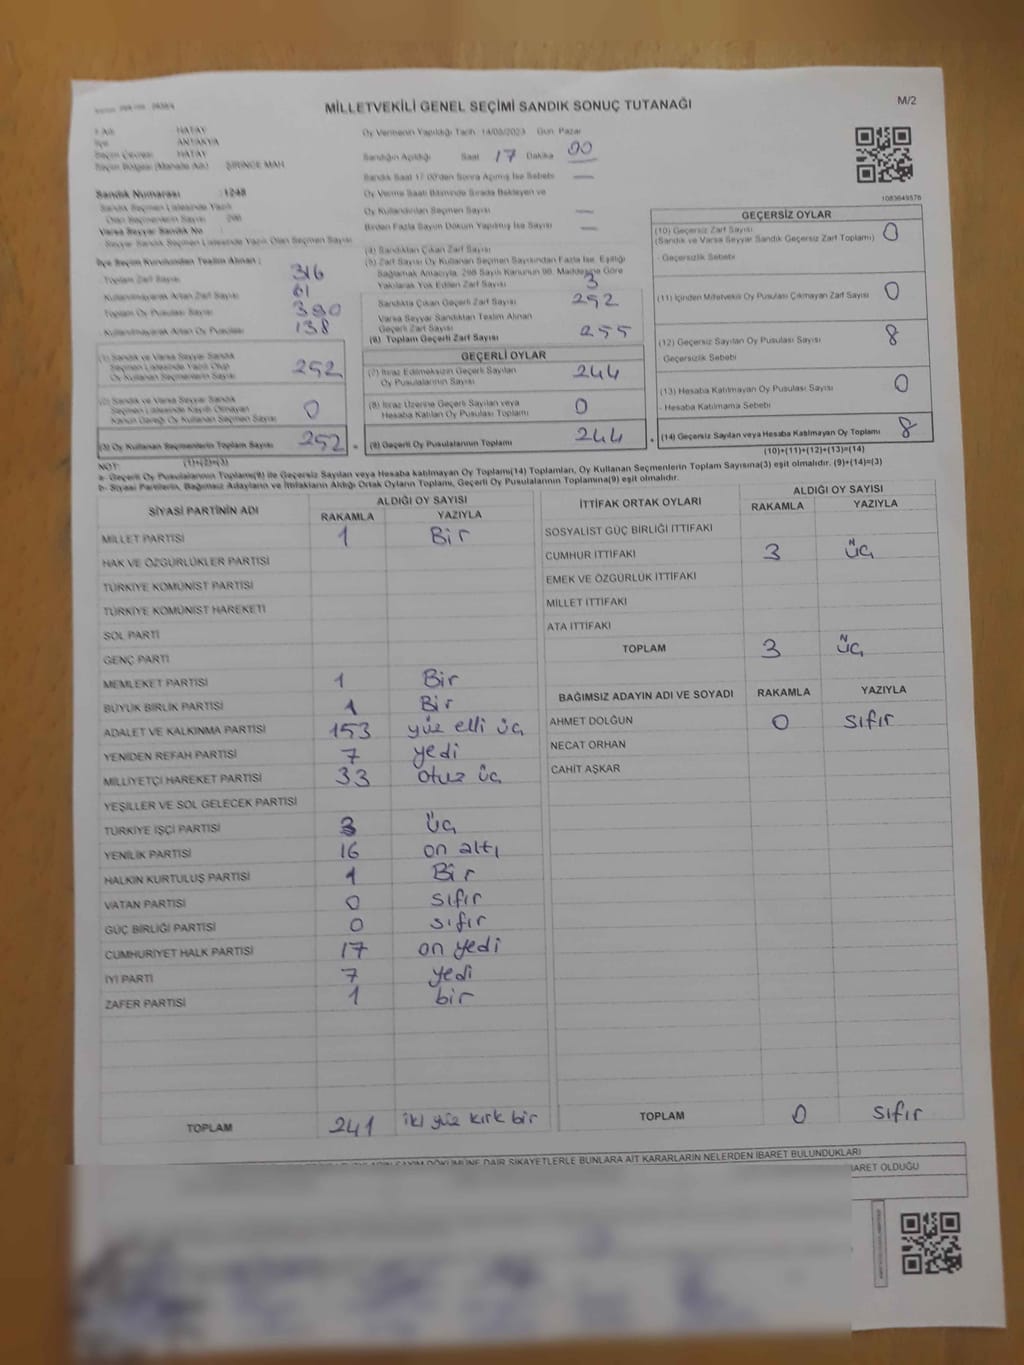 MİLLETVEKİLİ GENEL SEÇİMİ SANDIK SONUÇ TUTANAĞI
M/2
İli HATAY
İlçe ANTAKYA
Seçim Çevresi HATAY
Seçim Bölgesi (Mahalle Adı) ŞİRİNCE MAH
Oy Vermenin Yapıldığı Tarih 14/05/2023 Gün Pazar
Sandığın Açıldığı Saat 17 Dakika 00
Sandık Saat 17:00'den Sonra Açılmış İse Sebebi —
Oy Verme Saati Bitiminde Sırada Bekleyen ve
Oy Kullandırılan Seçmen Sayısı —
Birden Fazla Sayım Döküm Yapılmış İse Sayısı —
1083649576
Sandık Numarası : 1248
Sandık Seçmen Listesinde Yazılı
Olan Seçmenlerin Sayısı
Varsa Seyyar Sandık No
Seyyar Sandık Seçmen Listesinde Yazılı Olan Seçmen Sayısı
İlçe Seçim Kurulundan Teslim Alınan :
Toplam Zarf Sayısı 316
Kullanılmayarak Artan Zarf Sayısı 61
Toplam Oy Pusulası Sayısı 390
Kullanılmayarak Artan Oy Pusulası 138
(1) Sandık ve Varsa Seyyar Sandık
Seçmen Listesinde Yazılı Olup
Oy Kullanan Seçmenlerin Sayısı 252
(2) Sandık ve Varsa Seyyar Sandık
Seçmen Listesinde Kayıtlı Olmayan
Kanun Gereği Oy Kullanan Seçmen Sayısı 0
(3) Oy Kullanan Seçmenlerin Toplam Sayısı 252
(1)+(2)=(3)
(4) Sandıktan Çıkan Zarf Sayısı
(5) Zarf Sayısı Oy Kullanan Seçmen Sayısından Fazla İse, Eşitliği
Sağlamak Amacıyla, 298 Sayılı Kanunun 98. Maddesine Göre
Yakılarak Yok Edilen Zarf Sayısı 3
Sandıkta Çıkan Geçerli Zarf Sayısı 252
Varsa Seyyar Sandıktan Teslim Alınan
Geçerli Zarf Sayısı
(6) Toplam Geçerli Zarf Sayısı 255
GEÇERLİ OYLAR
(7) İtiraz Edilmeksizin Geçerli Sayılan
Oy Pusulalarının Sayısı 244
(8) İtiraz Üzerine Geçerli Sayılan veya
Hesaba Katılan Oy Pusulası Toplamı 0
= (9) Geçerli Oy Pusulalarının Toplamı 244
GEÇERSİZ OYLAR
(10) Geçersiz Zarf Sayısı 0
(Sandık ve Varsa Seyyar Sandık Geçersiz Zarf Toplamı)
- Geçersizlik Sebebi
(11) İçinden Milletvekili Oy Pusulası Çıkmayan Zarf Sayısı 0
(12) Geçersiz Sayılan Oy Pusulası Sayısı 8
Geçersizlik Sebebi
(13) Hesaba Katılmayan Oy Pusulası Sayısı 0
- Hesaba Katılmama Sebebi
+ (14) Geçersiz Sayılan veya Hesaba Katılmayan Oy Toplamı 8
(10)+(11)+(12)+(13)=(14)
NOT:
a- Geçerli Oy Pusulalarının Toplamı(9) ile Geçersiz Sayılan veya Hesaba katılmayan Oy Toplamı(14) Toplamları, Oy Kullanan Seçmenlerin Toplam Sayısına(3) eşit olmalıdır. (9)+(14)=(3)
b- Siyasi Partilerin, Bağımsız Adayların ve İttifakların Aldığı Ortak Oyların Toplamı, Geçerli Oy Pusulalarının Toplamına(9) eşit olmalıdır.
SİYASİ PARTİNİN ADI ALDIĞI OY SAYISI
RAKAMLA YAZIYLA
MİLLET PARTİSİ 1 Bir
HAK VE ÖZGÜRLÜKLER PARTİSİ
TÜRKİYE KOMÜNİST PARTİSİ
TÜRKİYE KOMÜNİST HAREKETİ
SOL PARTİ
GENÇ PARTİ
MEMLEKET PARTİSİ 1 Bir
BÜYÜK BİRLİK PARTİSİ 1 Bir
ADALET VE KALKINMA PARTİSİ 153 yüz elli üç
YENİDEN REFAH PARTİSİ 7 yedi
MİLLİYETÇİ HAREKET PARTİSİ 33 otuz üç
YEŞİLLER VE SOL GELECEK PARTİSİ
TÜRKİYE İŞÇİ PARTİSİ 3 üç
YENİLİK PARTİSİ 16 on altı
HALKIN KURTULUŞ PARTİSİ 1 Bir
VATAN PARTİSİ 0 sıfır
GÜÇ BİRLİĞİ PARTİSİ 0 sıfır
CUMHURİYET HALK PARTİSİ 17 on yedi
İYİ PARTİ 7 yedi
ZAFER PARTİSİ 1 bir
TOPLAM 241 iki yüz kırk bir
İTTİFAK ORTAK OYLARI ALDIĞI OY SAYISI
RAKAMLA YAZIYLA
SOSYALİST GÜÇ BİRLİĞİ İTTİFAKI
CUMHUR İTTİFAKI 3 üç
EMEK VE ÖZGÜRLÜK İTTİFAKI
MİLLET İTTİFAKI
ATA İTTİFAKI
TOPLAM 3 üç
BAĞIMSIZ ADAYIN ADI VE SOYADI RAKAMLA YAZIYLA
AHMET DOLĞUN 0 sıfır
NECAT ORHAN
CAHİT AŞKAR
TOPLAM 0 sıfır
SAYIM DÖKÜMÜNE DAİR ŞİKAYETLERLE BUNLARA AİT KARARLARIN NELERDEN İBARET BULUNDUKLARI
İBARET OLDUĞU